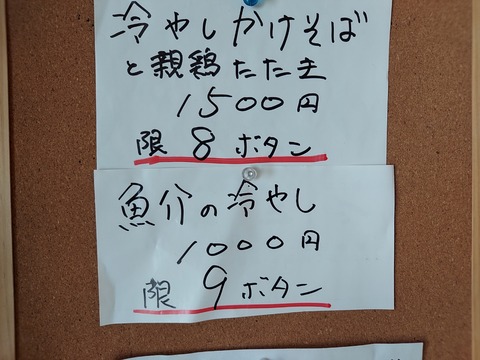 冷やしかけそば
と親鶏たたき
1500円
限 8 ボタン
魚介の冷やし
1000円
限 9 ボタン